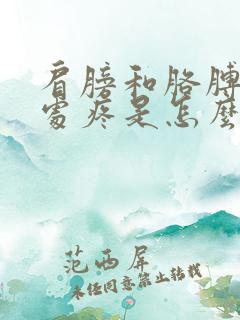 肩膀和胳膊
處疼是怎麼
范西屏
未经同意禁止转载